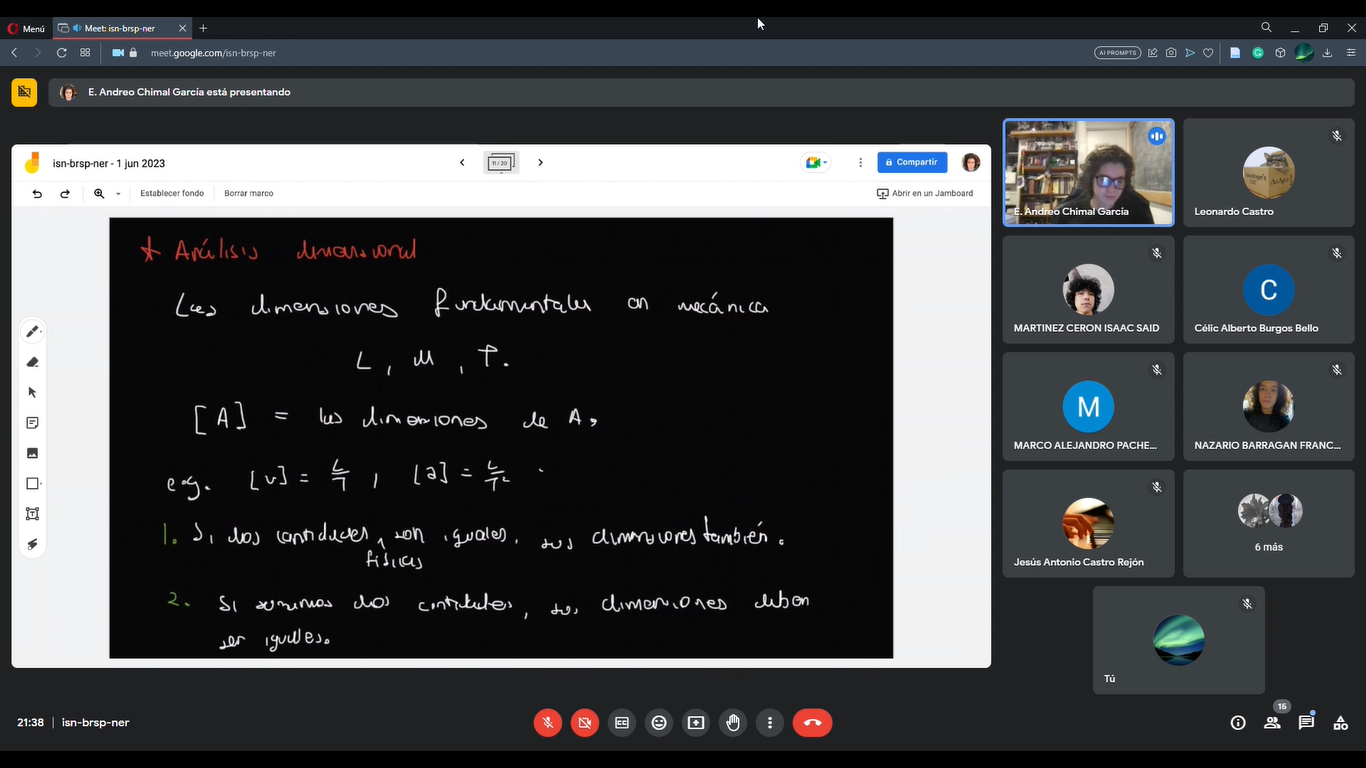 Menú
Meet: isn-brsp-ner
meet.google.com/isn-brsp-ner
AI PROMPTS
E. Andreo Chimal García está presentando
isn-brsp-ner - 1 jun 2023
11 / 20
Compartir
Establecer fondo
Borrar marco
Abrir en un Jamboard
* Análisis dimensional
Las dimensiones fundamentales en mecánica
L, M, T.
[A] = las dimensiones de A.
e.g. [v] = L/T, [a] = L/T²
1. Si dos cantidades físicas son iguales, sus dimensiones también.
2. Si sumamos dos cantidades, sus dimensiones deben
ser iguales.
E. Andreo Chimal García
Leonardo Castro
MARTINEZ CERON ISAAC SAID
C
Célic Alberto Burgos Bello
M
MARCO ALEJANDRO PACHE...
NAZARIO BARRAGAN FRANC...
Jesús Antonio Castro Rejón
6 más
Tú
21:38 | isn-brsp-ner
15